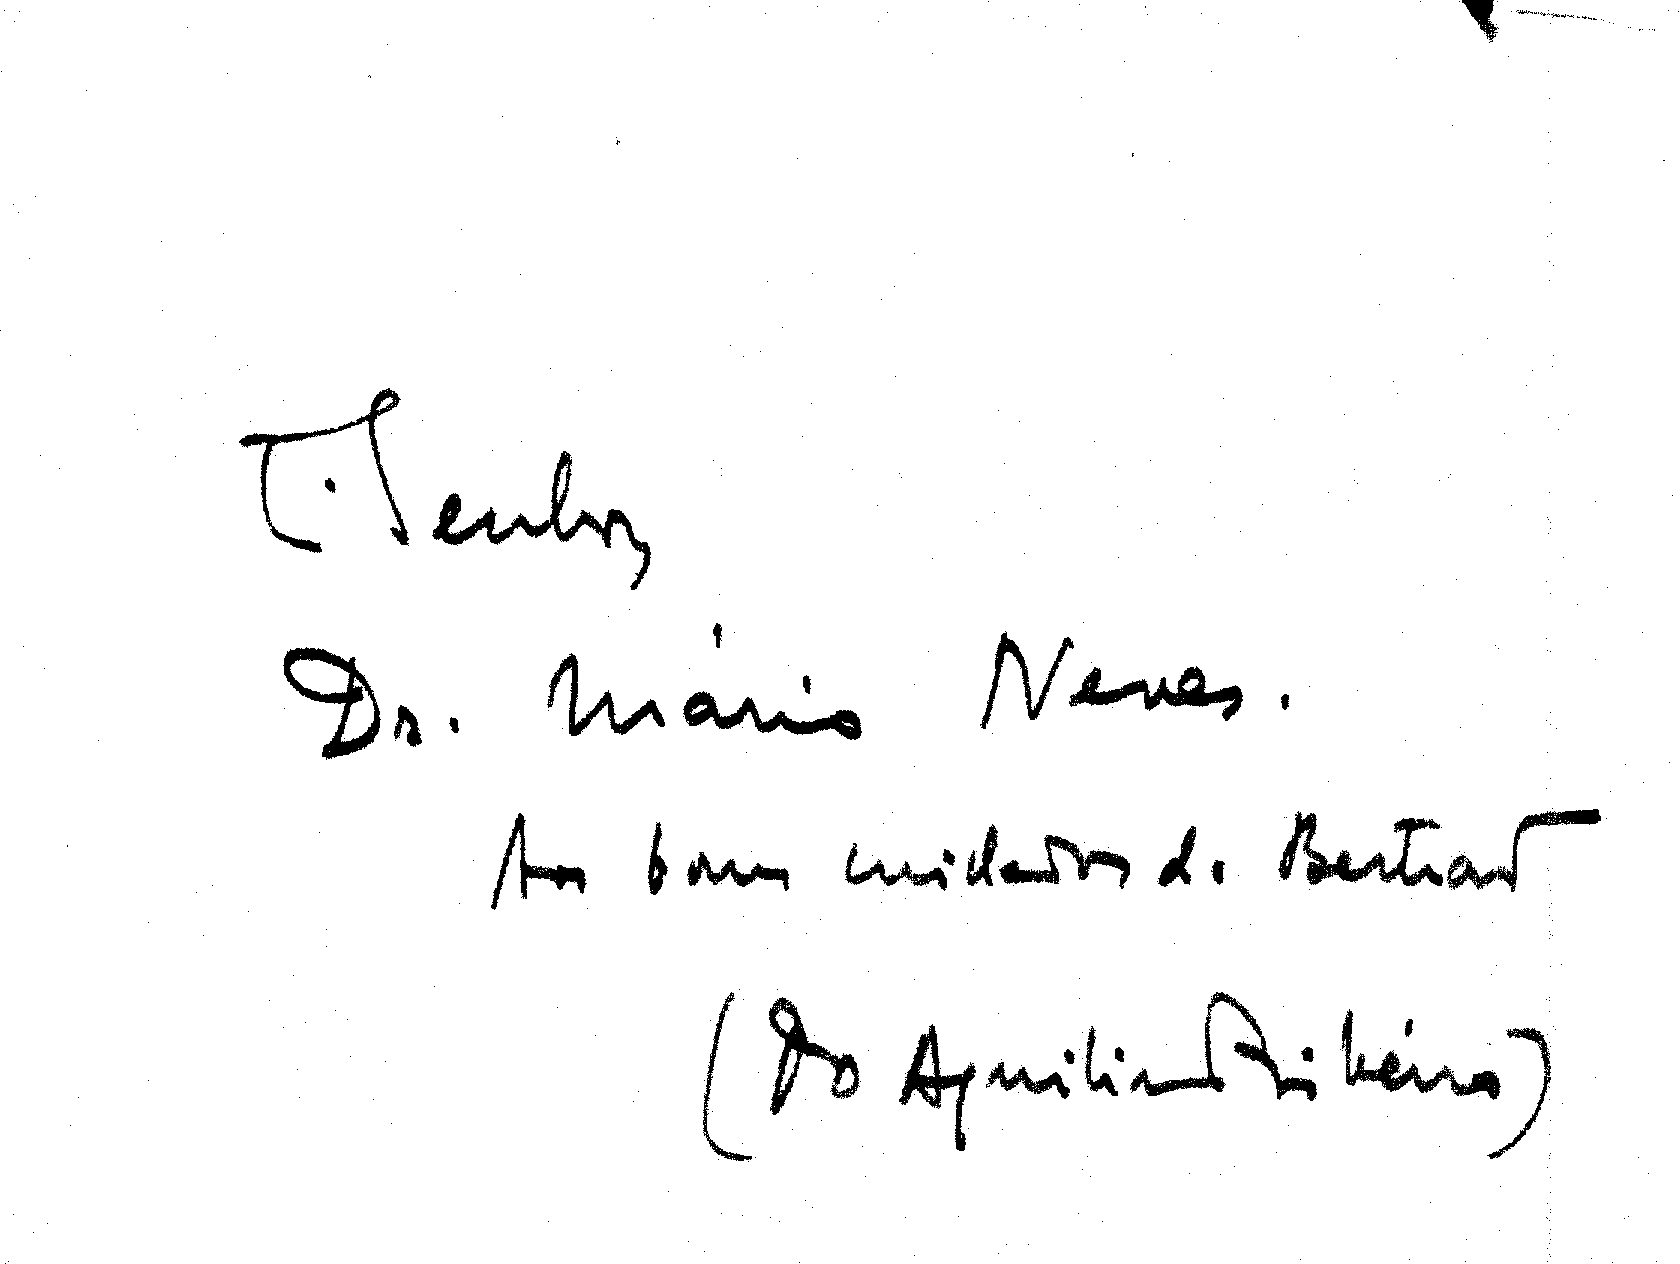 Senhor
Dr. Mário Neves.
Aos bons cuidados de Bertrand
(Do Aquilino Ribeiro)